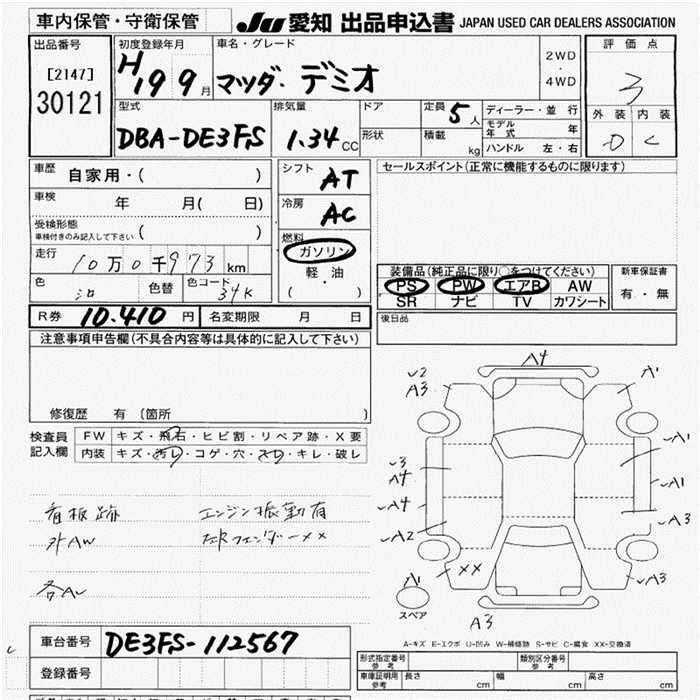 車内保管・守衛保管
JU 愛知 出品申込書 JAPAN USED CAR DEALERS ASSOCIATION
出品番号
[2147]
30121
初度登録年月
H19 9月
車名・グレード
マツダ・デミオ
2WD
・
4WD
評価点
3
外装 内装
D C
型式
DBA-DE3FS
排気量
1.34cc
ドア
形状
定員 5人
積載 kg
ディーラー・並行
モデル年式 年
ハンドル 左・右
車歴 自家用・( )
車検 年 月( 日)
受検形態
車検付きのみ記入して下さい ( )
走行 10万0千973km
色 色替 色コード 34K
シフト AT
冷房 AC
燃料
ガソリン
軽・油
( )
セールスポイント(正常に機能するものに限ります)
装備品(純正品に限り○をつけてください)
PS PW エアB AW
SR ナビ TV カワシート
新車保証書
有・無
後日品
R券 10.410円 名変期限 月 日
注意事項申告欄(不具合内容等は具体的に記入して下さい)
修復歴 有 (箇所 )
検査員記入欄
FW キズ・飛石・ヒビ割・リペア跡・X要
内装 キズ・汚レ・コゲ・穴・スレ・キレ・破レ
看板跡 エンジン振動有
外AW 左Rフェンダー××
A4
✓2
A3
A'
✓3
A4
✓A4
✓A2
✓A1
✓A1
✓A3
✓××
A'
スペア
✓A3
A3
A-キズ E-エクボ U-凹み W-補修跡 S-サビ C-腐食 XX-交換済
車台番号 DE3FS-112567
登録番号
形式指定番号
参考
類別区分番号
参考
車庫証明用
参考
長さ cm 幅 cm 高さ cm